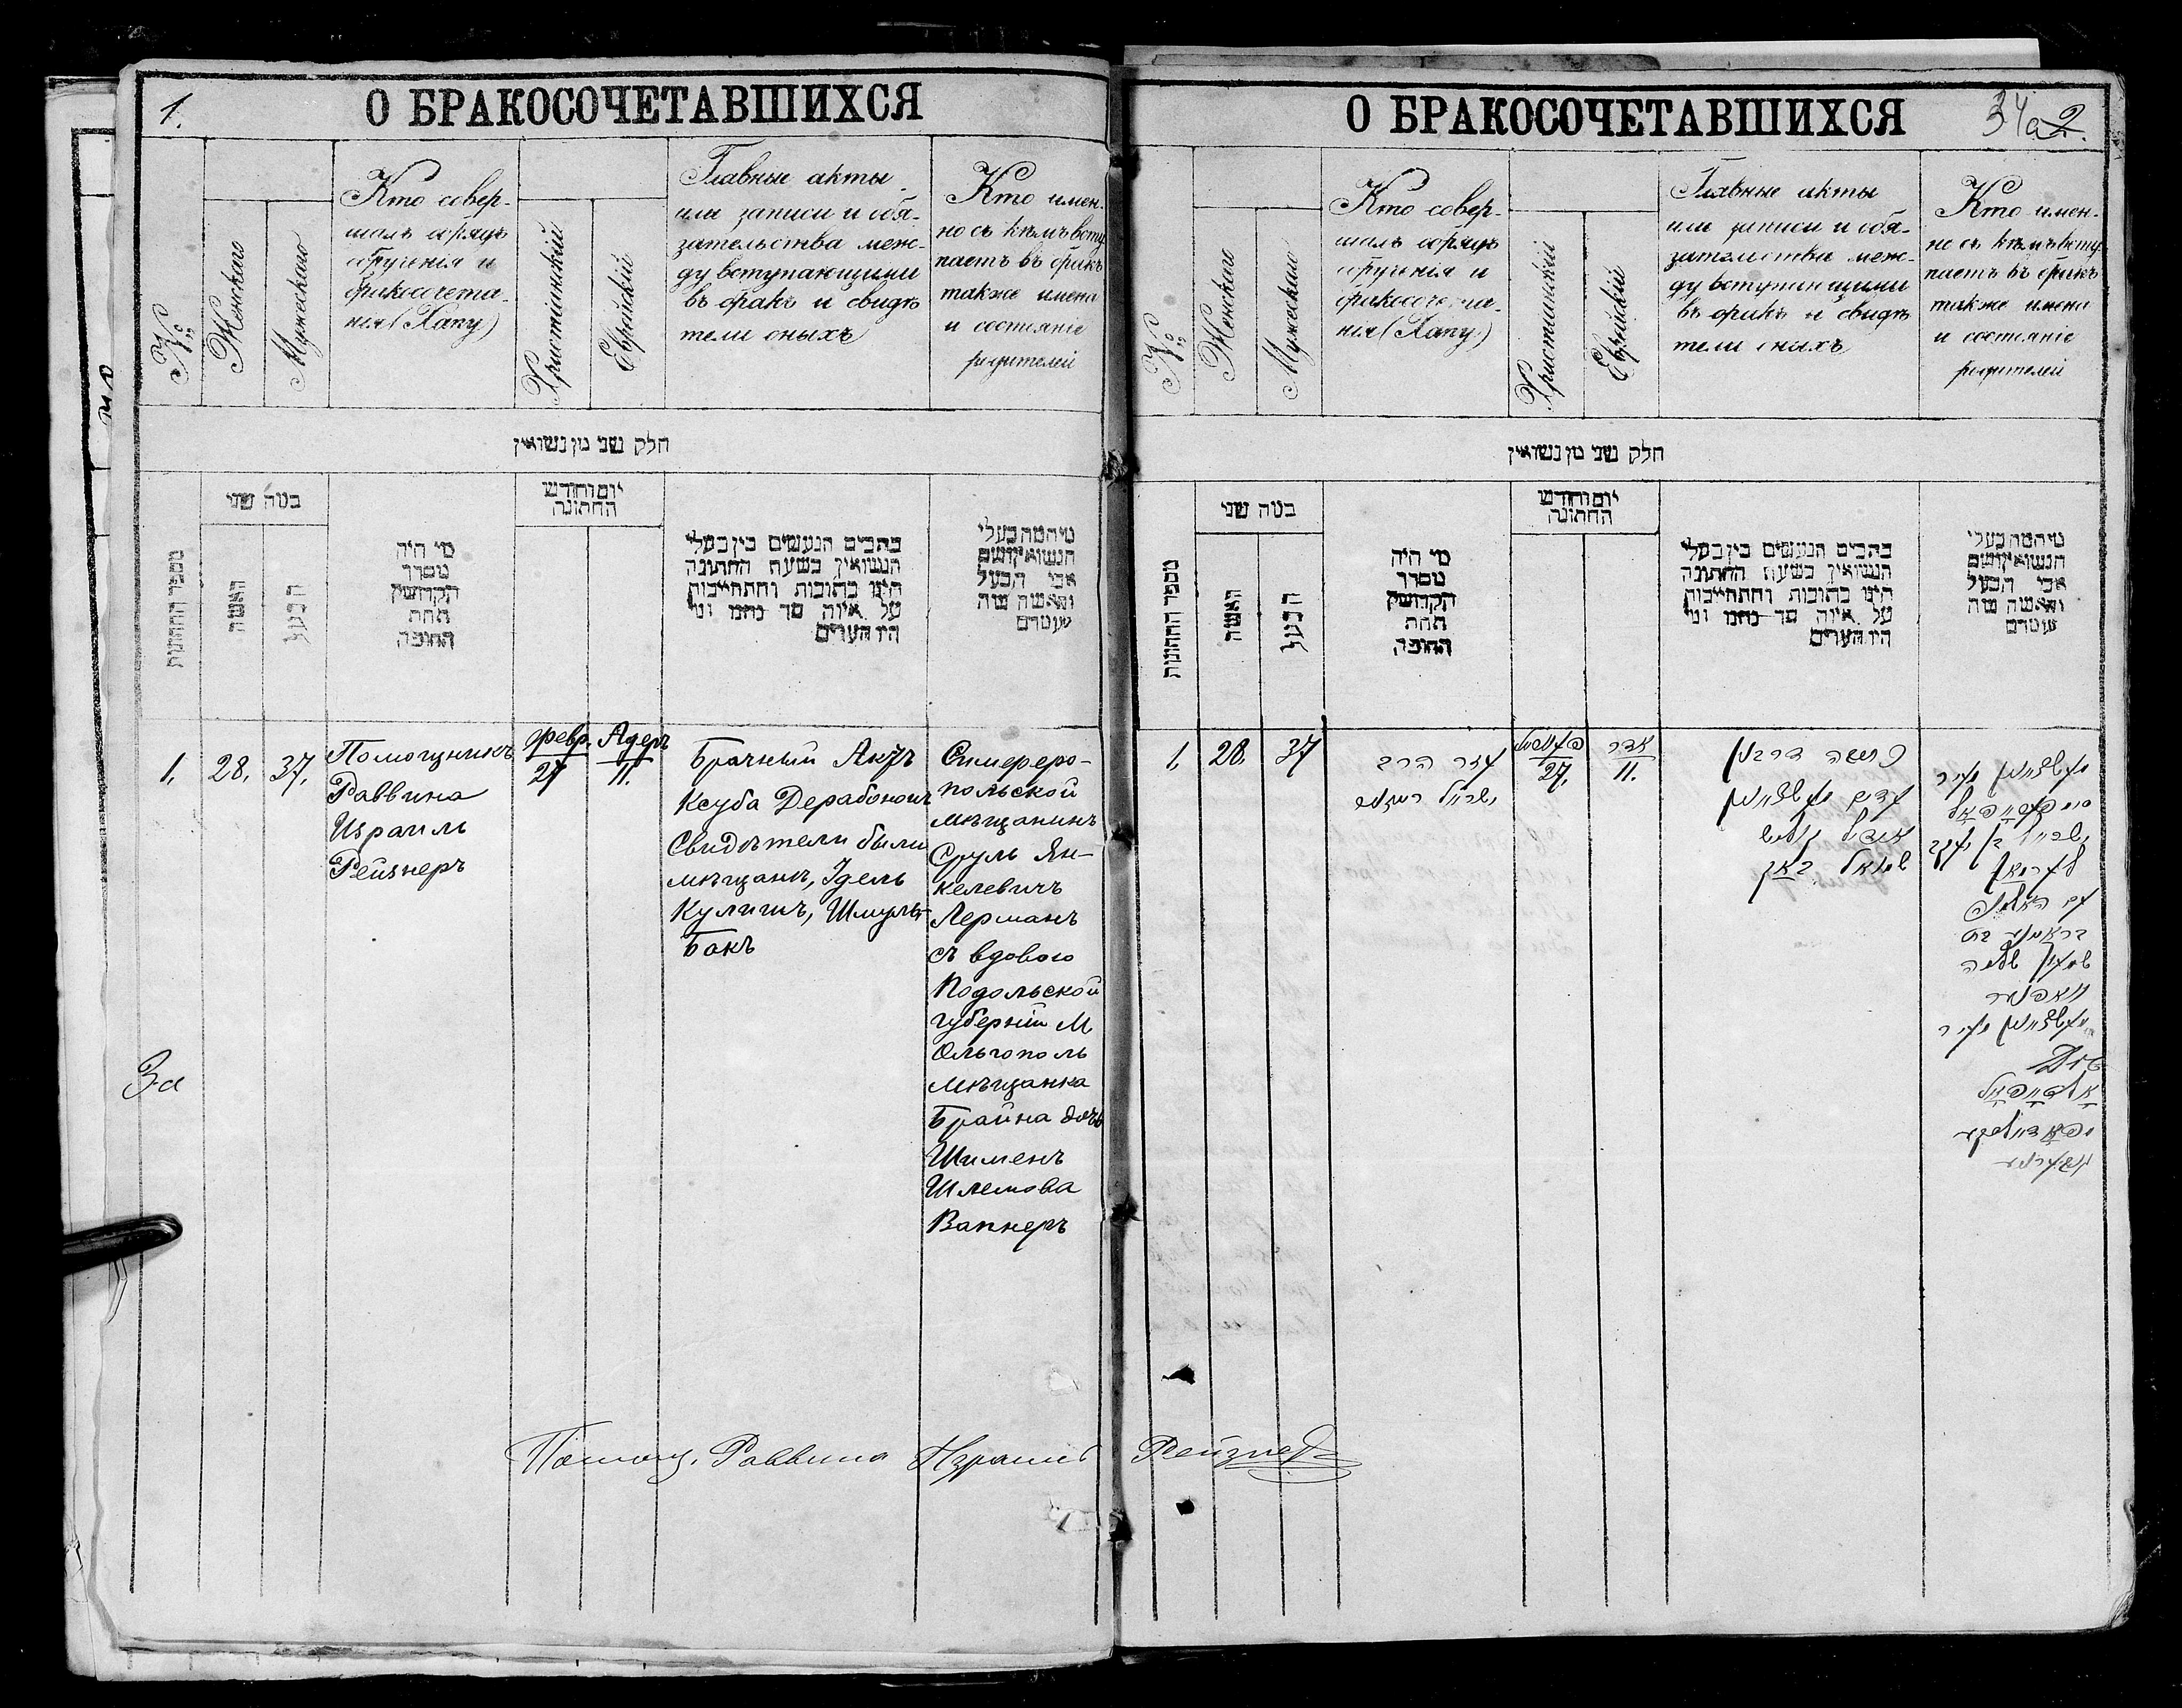 1.
О БРАКОСОЧЕТАВШИХСЯ
№
Женскаго
Мужескаго
Кто совер-
шалъ обрядъ
обрученія и
бракосочета-
нія (Хапу)
Христіанскій
Еврейскій
Главные акты
или записи и обя-
зательства меж-
ду вступающими
въ бракъ и свидѣ
тели оныхъ
Кто имен-
но съ кѣмъ всту
паетъ въ бракъ
также имена
и состояніе
родителей
חלק שני מן נשואין
מספר החתונות
כמה שני
האשה
הבעל
מי היה
מסדר
הקדושין
תחת
החופה
יום וחודש
החתונה
כתבים הנעשים בין בעלי
הנשואין בשעת החתונה
היינו כתובות והתחייבות
על איזה סך נתנו ומי
היו העדים
מי המה בעלי
הנשואין ושם
אבי הבעל
והאשה ומה
מעמדם
1.
28.
37.
Помощникъ
Раввина
Израиль
Рейзнеръ
Февр.
27
Адеръ
11.
Брачный Актъ
Ксуба Дерабононъ
Свидѣтели были
мѣщане, Идель
Кулишъ, Шмуль
Бакъ
Симферо-
польской
мѣщанинъ
Сруль Ян-
келевичъ
Лерманъ
съ вдовою
Подольской
губерніи М
Ольгополь
мѣщанка
Брайна дочь
Шименъ
Шлемова
Вапнеръ
3а
Помощ. Раввина Израиль Рейзнеръ
О БРАКОСОЧЕТАВШИХСЯ
34а
2.
№
Женскаго
Мужескаго
Кто совер-
шалъ обрядъ
обрученія и
бракосочета-
нія (Хапу)
Христіанскій
Еврейскій
Главные акты
или записи и обя-
зательства меж-
ду вступающими
въ бракъ и свидѣ
тели оныхъ
Кто имен-
но съ кѣмъ всту
паетъ въ бракъ
также имена
и состояніе
родителей
חלק שני מן נשואין
מספר החתונות
כמה שני
האשה
הבעל
מי היה
מסדר
הקדושין
תחת
החופה
יום וחודש
החתונה
כתבים הנעשים בין בעלי
הנשואין בשעת החתונה
היינו כתובות והתחייבות
על איזה סך נתנו ומי
היו העדים
מי המה בעלי
הנשואין ושם
אבי הבעל
והאשה ומה
מעמדם
1.
28.
37
עזר הרב
ישראל רייזנער
27.
אדר
11.
דרבנן
שמואל באק
מעשצאנין מעיר
סימפעראפאל
ישראל בן יעקב
לערמאן
עם האלמנה
בראינע בת
שמעון שלמה
וואפנער
מעשצאנין מעיר